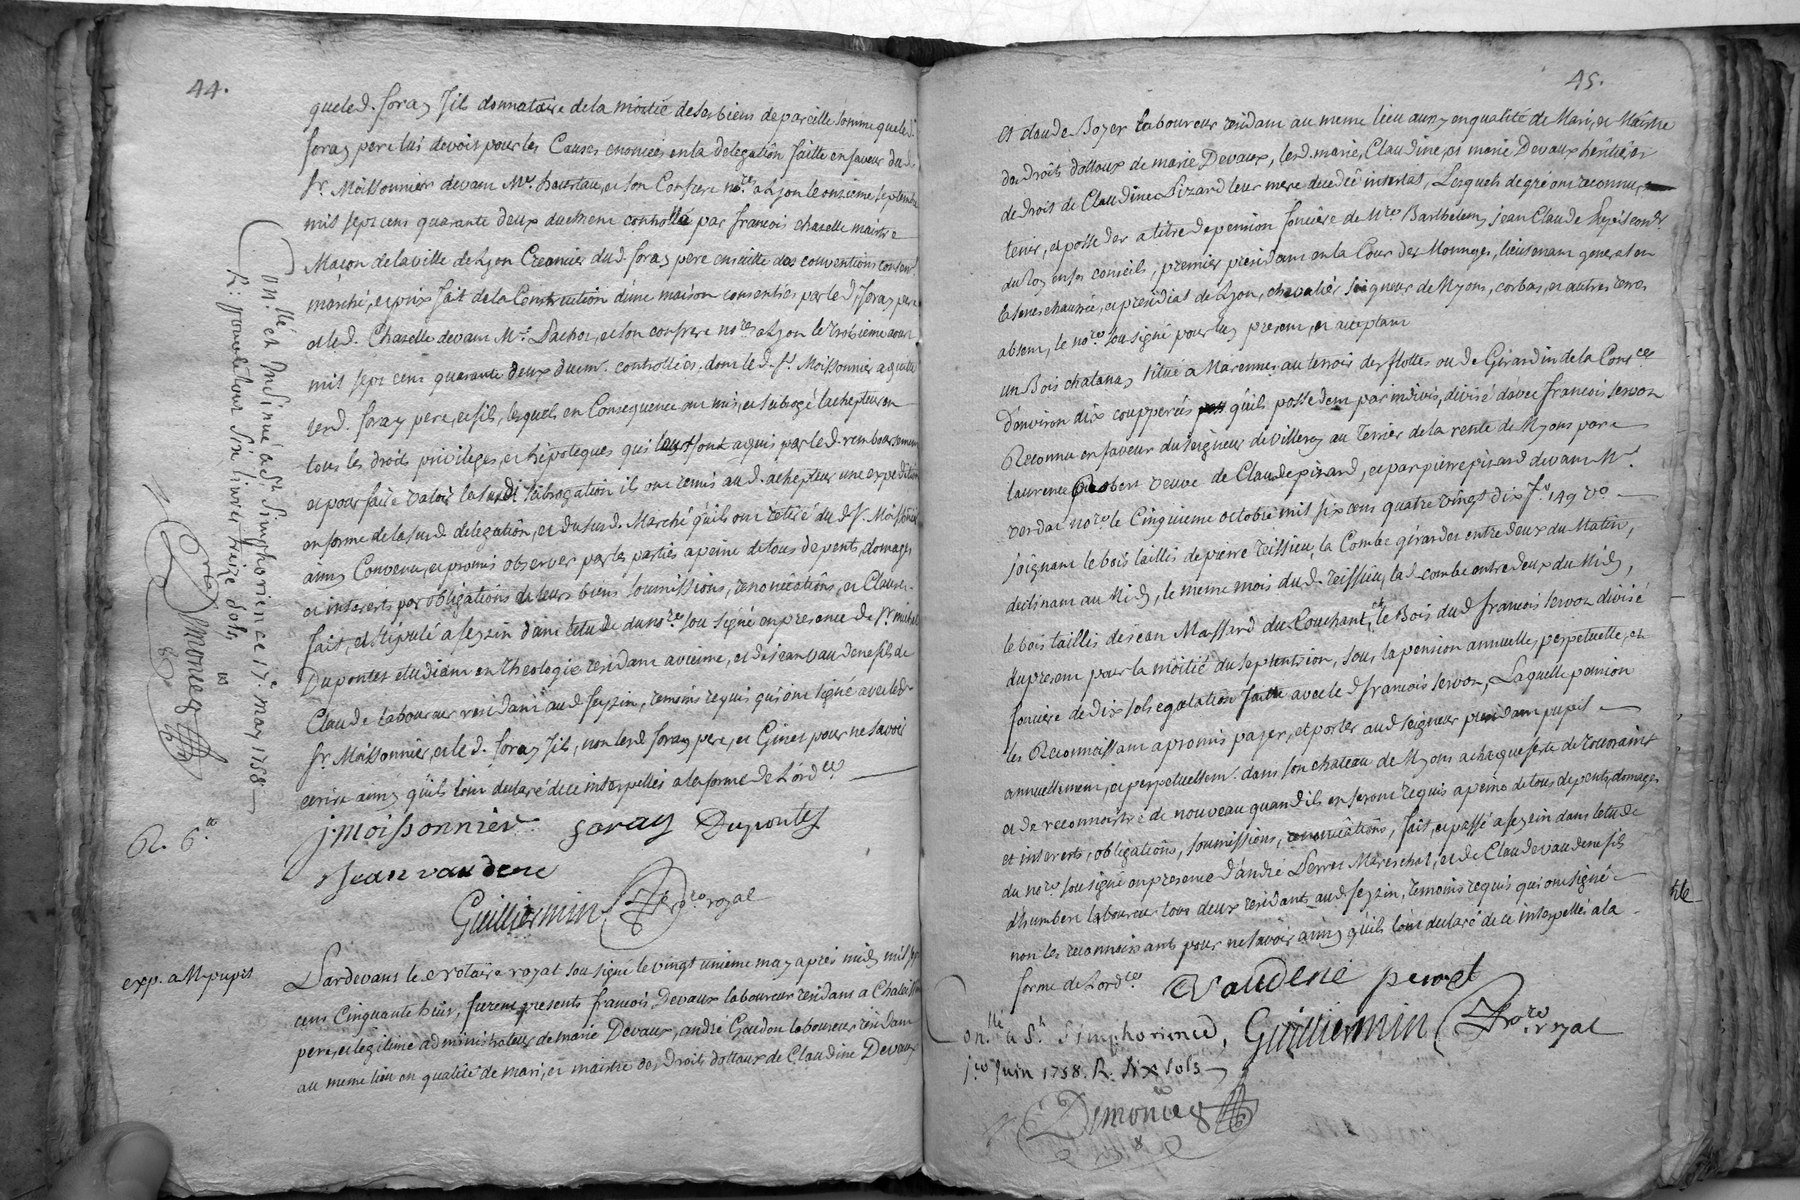 44.
que led. foray fils donnataire de la moitié de ses biens de pareille somme que led.
foray pere lui devoit pour les Causes enoncées en la delegaôn faitte en faveur dud.
Sr. Moissonnier devant Me. et son Confrere nores. a Lyon le onzieme septembre
mil sept cens quarante deux duement controllé par francois chazelle maistre
Maçon de la ville de Lyon Creancier dud. foray pere ensuitte des conventions
marché, et prix fait de la Construction d'une maison consenties par led. foray pere
et led. Chazelle devant Me. et son confrere nores a Lyon le troisieme aout
mil sept cens quarante deux duemt. controllées, dont led. Sr. Moissonnier a quitté
lesd. foray pere, et fils, lesquels en Consequence ont mis, et subrogé l'achepteur en
tous les droits privileges, et hipoteques qui leur sont aquis par led. remboursement
et pour faire valoir la susd. subrogation ils ont remis aud. achepteur une expedition
en forme de la susd. delegation, et du susd. Marché qu'ils ont retiré dud. Sr. Moissonnier
ainsy Convenu, et promis observer par les parties a peine de tous depents, domages
et interets par obligations de leurs biens soumissions, renonciations, et Clauses.
fait, et stipulé a feyzin dans l'etude du nore. sousigné en presence de Sr. michel
Dupontet etudiant en theologie residant a vienne, et de jean vaudene fils de
Claude laboureur residant aud. feyzin, temoins requis qui ont signé avec led.
Sr. Moissonnier, et le d. foray fils, non lesd. foray pere, et Ginet pour ne savoir
ecrire ainsy qu'ils l'ont declaré de ce interpellés a la forme de l'ordce.
j: moissonnier foray Dupontet
Jean vaudene
Guilliermin nore royal
R. 6.#
on.llé et insinué a St. Simphorien ce 17e. may 1758
R: pour le tout six livres treize sols
Demoniez
exp. a M pupil
Pardevant le Notaire royal sousigné le vingt unieme may après midy mil sept
cens Cinquante huit, furent presents francois Devaux laboureur residant a Chaleyssin
pere, et legitime administrateur de marie Devaux, andré Gaudon laboureur residant
au meme lieu en qualité de mari, et maistre des droits dottaux de Claudine Devaux
45.
et claude Boyer laboureur residant au meme lieu aussy en qualité de Mari, et Maistre
des droits dottaux de marie Devaux, lesd. marie, Claudine, et marie Devaux heritieres
de droit de Claudine Pizard leur mere decedée intestat, Lesquels de gré ont reconnu,
tenir, et posseder a titre de pension fonciere de Mre. Barthelemy jean Claude Pupil conser.
du Roy en ses conseils, premier president en la Cour des Monnoyes, lieutenant general en
la senechaussée, et presidial de Lyon, chevalier seigneur de Myons, corbas, et autres terres
absent, le nore. sousigné pour luy present, et acceptant
un Bois chatanay situé a Marennes au terroir des flottes ou de Girardin de la Contce.
d'environ dix coupperées qu'ils possedent par indivis, divisé d'avec francois servoz
Reconnu en faveur du seigneur de Villeroy au terrier de la rente de Myons par
laurence Robert veuve de Claude pizard, et par pierre pizard devant Me.
verdat nore. le Cinquieme octobre mil six cens quatre vingt dix fo. 149 vo.
joignant le bois taillis de pierre teissieu, la Combe gérardet entre deux du Matin,
declinant au Midy, le meme mois dud. teissieu, lad. combe entre deux du Midy,
le bois taillis de jean Massard du Couchant, et le Bois dud. francois servoz divisé
du present pour la moitié du septentrion, sous la pension annuelle, perpetuelle, et
fonciere de dix sols egalation faitte avec led. francois servoz, Laquelle pension
les Reconnoissant a promis payer, et porter aud. seigneur president pupil
annuellement, et perpetuellemt. dans son chateau de Myons a chaque feste de toussaint
et de reconnoistre de nouveau quand ils en seront requis a peine de tous depents, domages
et interets, obligations, soumissions, renonciations, fait, et passé a feyzin dans l'etude
du nore. sousigné en presence d'andré Perret Mareschal, et de Claude vaudene fils
d'humbert laboureur tous deux residants aud. feyzin, temoins requis qui ont signé
non les reconnoissants pour ne savoir ainsy qu'ils l'ont declaré de ce interpellés a la
forme de l'ordce.
Vaudene perret
Guilliermin nore royal
on.llé a St. Simphorien ce
1er Juin 1758. R. six sols
Demoniez